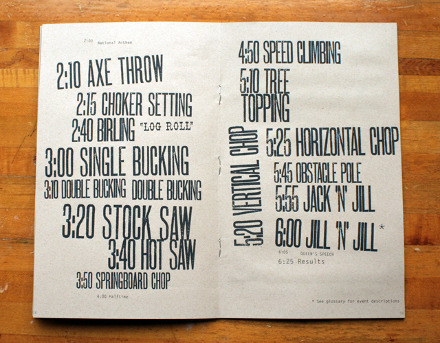 2:00 National Anthem
2:10 AXE THROW
2:15 CHOKER SETTING
2:40 BIRLING "LOG ROLL"
3:00 SINGLE BUCKING
3:10 DOUBLE BUCKING DOUBLE BUCKING
3:20 STOCK SAW
3:40 HOT SAW
3:50 SPRINGBOARD CHOP
4:00 Halftime
4:50 SPEED CLIMBING
5:10 TREE
TOPPING
5:20 VERTICAL CHOP
5:25 HORIZONTAL CHOP
5:45 OBSTACLE POLE
5:55 JACK 'N' JILL
6:00 JILL 'N' JILL *
SPEECH
6:25 Results
* See glossary for event descriptions